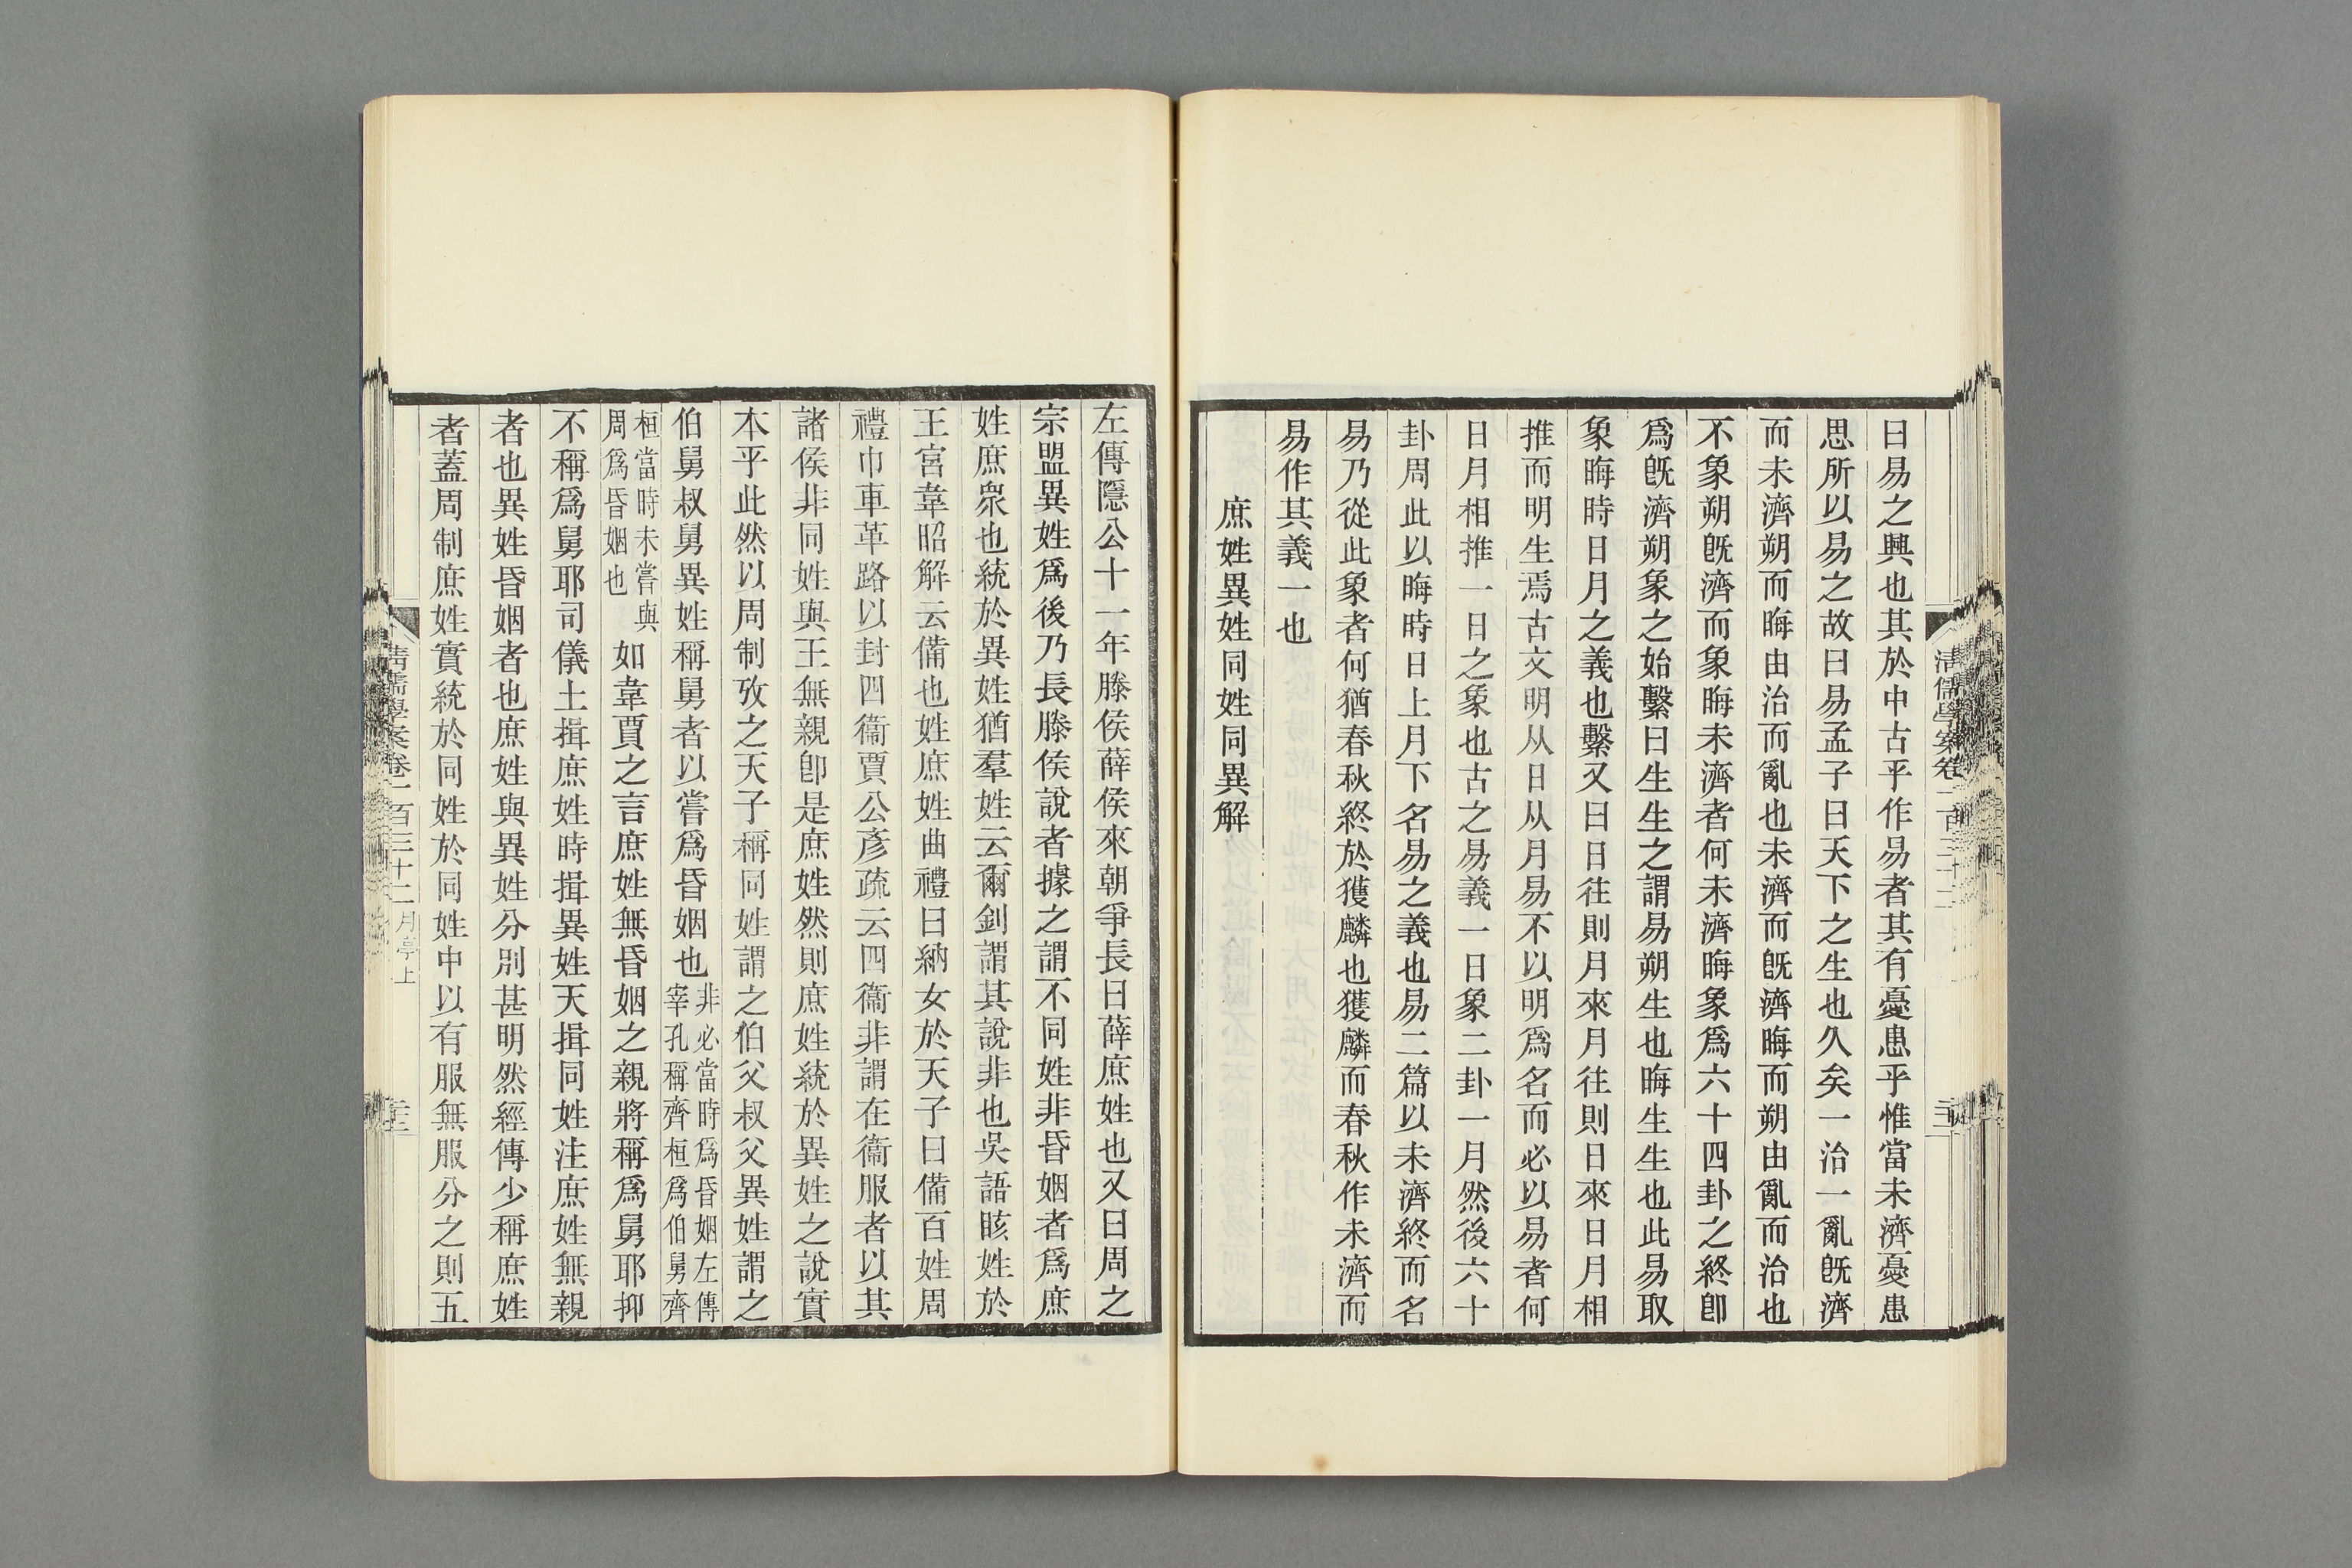 曰易之興也其於中古乎作易者其有憂患乎惟當未濟憂患
思所以易之故曰易孟子曰天下之生也久矣一治一亂旣濟
而未濟朔而晦由治而亂也未濟而旣濟晦而朔由亂而治也
不象朔旣濟而象晦未濟者何未濟晦象爲六十四卦之終卽
爲旣濟朔象之始繫曰生生之謂易朔生也晦生生也此易取
象晦時日月之義也繫又曰日往則月來月往則日來日月相
推而明生焉古文明从日从月易不以明爲名而必以易者何
日月相推一日之象也古之易義一日象二卦一月然後六十
卦周此以晦時日上月下名易之義也易二篇以未濟終而名
易乃從此象者何猶春秋終於獲麟也獲麟而春秋作未濟而
易作其義一也
庶姓異姓同姓同異解
清儒學案卷一百三十二
左傳隱公十一年滕侯薛侯來朝爭長曰薛庶姓也又曰周之
宗盟異姓爲後乃長滕侯說者據之謂不同姓非昏姻者爲庶
姓庶衆也統於異姓猶羣姓云爾釗謂其說非也吳語晐姓於
王宮韋昭解云備也姓庶姓曲禮曰納女於天子曰備百姓周
禮巾車革路以封四衞賈公彥疏云四衞非謂在衞服者以其
諸侯非同姓與王無親卽是庶姓然則庶姓統於異姓之說實
本乎此然以周制攷之天子稱同姓謂之伯父叔父異姓謂之
伯舅叔舅異姓稱舅者以嘗爲昏姻也
非必當時爲昏姻左傳
宰孔稱齊桓爲伯舅齊
桓當時未嘗與
周爲昏姻也
如韋賈之言庶姓無昏姻之親將稱爲舅耶抑
不稱爲舅耶司儀土揖庶姓時揖異姓天揖同姓注庶姓無親
者也異姓昏姻者也庶姓與異姓分別甚明然經傳少稱庶姓
者蓋周制庶姓實統於同姓於同姓中以有服無服分之則五
清儒學案卷一百三十二月亭上